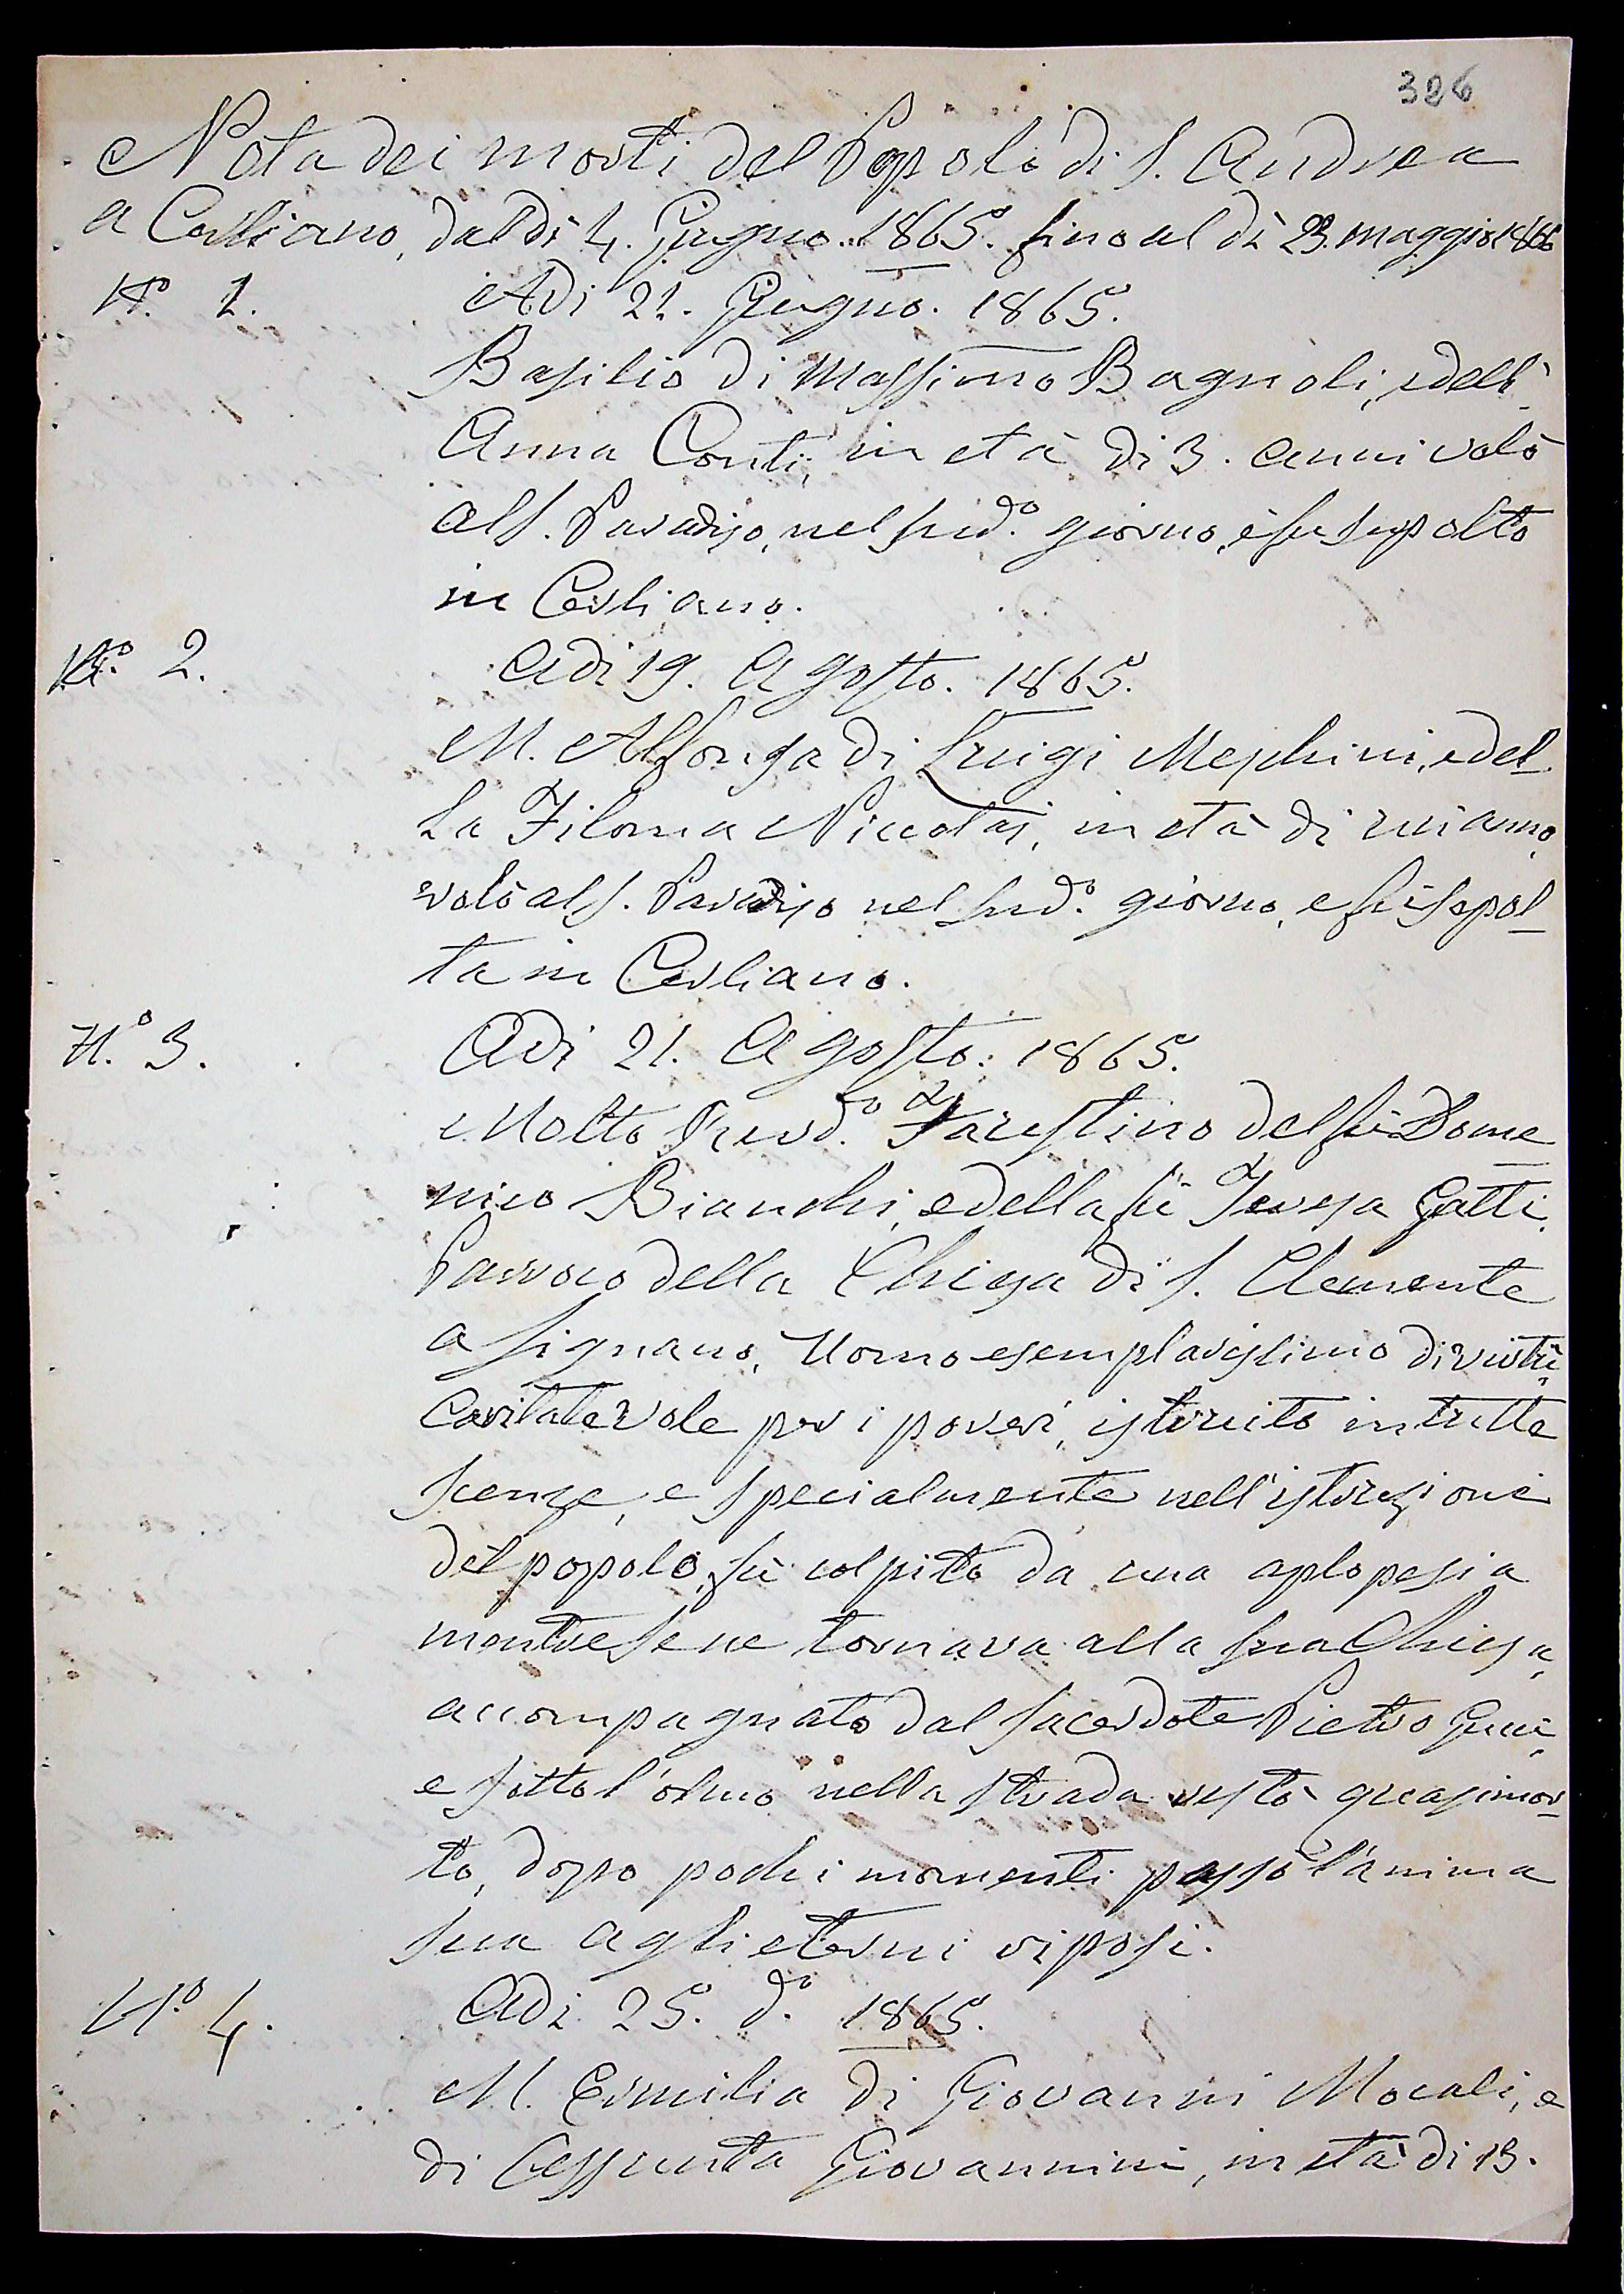 326
Nota dei morti del Popolo di S. Andrea
a Casliano, dal dì 4. Giugno. 1865. fino al dì 23. maggio 1866
N.º 1. Adi 21. Giugno. 1865.
Basilio di Massimo Bagnoli, e dell'
Anna Conti, in età di 3. anni volò
al S. Paradiso, nel sud.º giorno, e fu sepolto
in Casliano.
N.º 2. Adi 19. Agosto. 1865.
M. Alfonsa di Luigi Meschini, e del-
la Filoma Niccolai, in età di un anno,
volò al S. Paradiso nel sud.º giorno, e fù sepol-
ta in Casliano.
N.º 3. Adi 21. Agosto. 1865.
Molto Revd.º Faustino del fù Dome-
nico Bianchi, e della fù Teresa Gatti,
Parroco della Chiesa di S. Clemente
a Signano, Uomo esemplarissimo di virtù,
Caritatevole per i poveri, istruito in tutte
scenze, e specialmente nell'istruzione
del popolo, fù colpito da una aplopesia
mentre se ne tornava alla sua Chiesa,
accompagnato dal sacerdote Pietro Gucci,
e sotto l'olmo nella strada restò quasi mor-
to, dopo pochi momenti passò l'anima
sua agli eterni riposi.
N.º 4. Adi 25. d.º 1865.
M. Ermilia di Giovanni Mocali, e
di Assunta Giovannini, in età di 13.